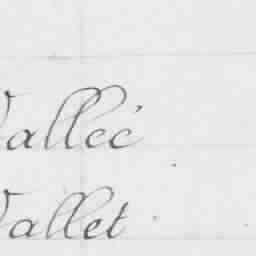 Vallée
Vallet